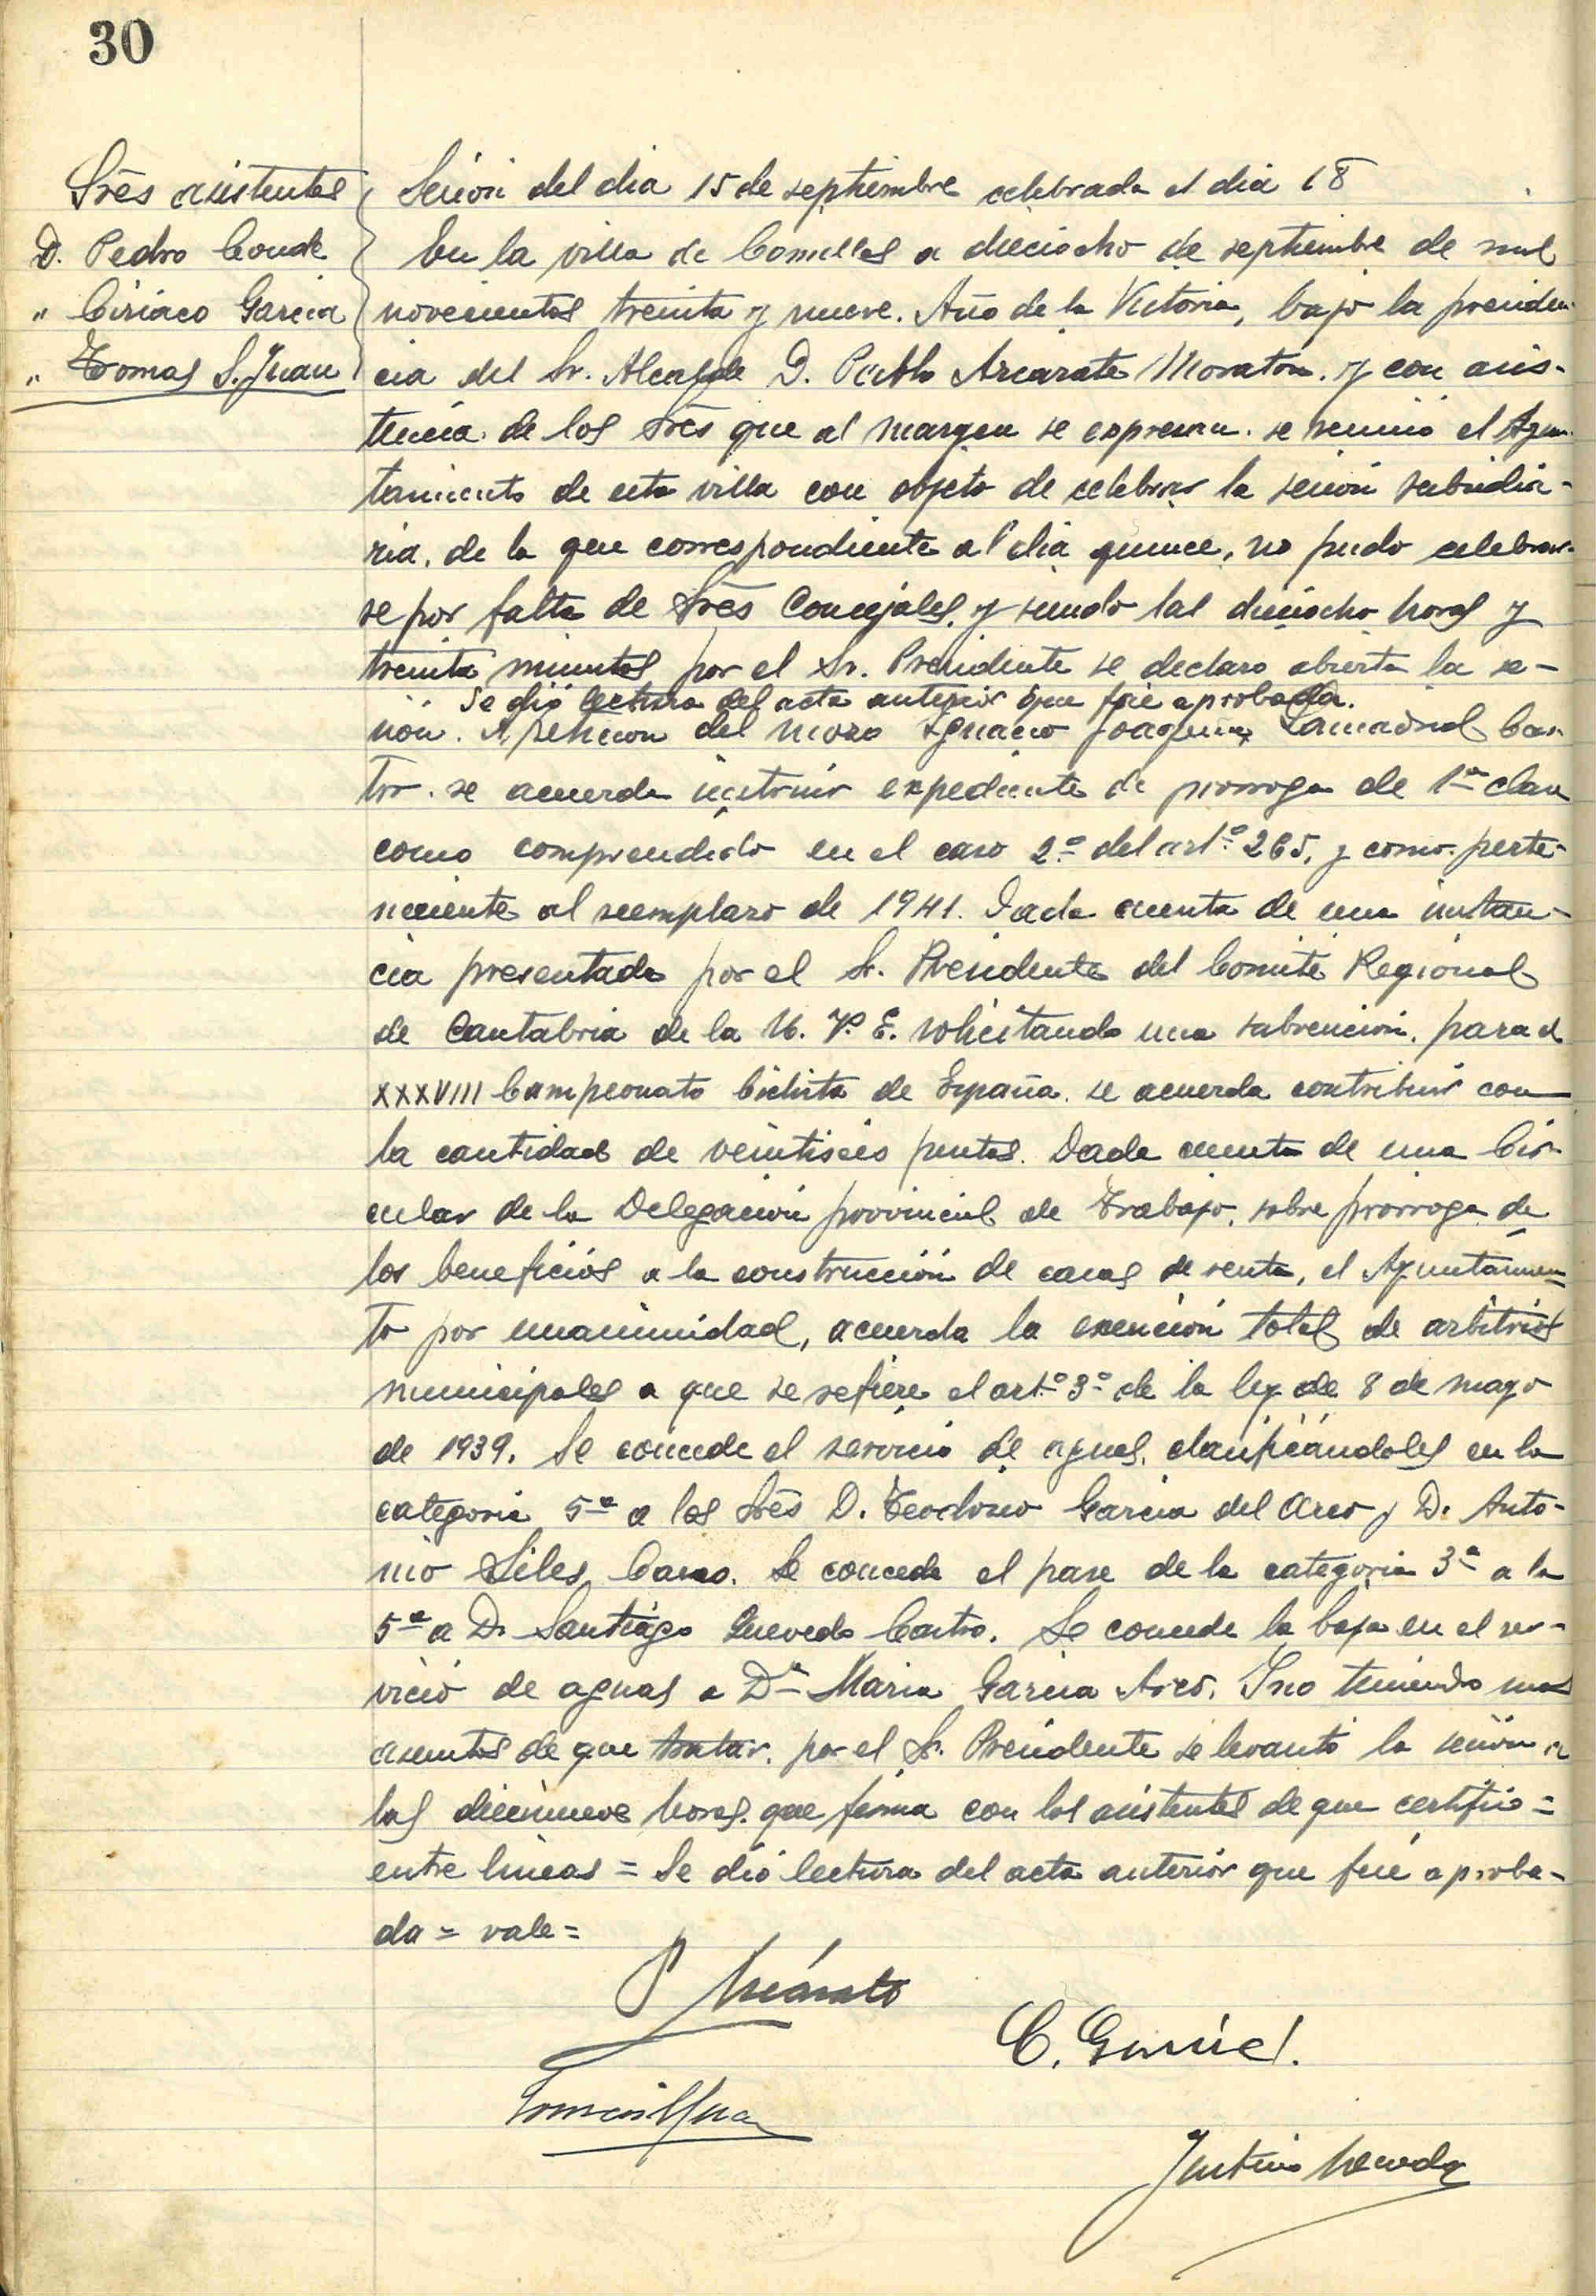 30
Srēs asistentes
D. Pedro Conde
" Ciriaco Garcia
" Tomas S. Juan
Sesión del dia 15 de septiembre celebrada el dia 18
En la villa de Comillas a dieciocho de septiembre de mil
novecientos treinta y nueve. Año de la Victoria, bajo la presiden-
cia del Sr. Alcalde D. Pablo Arcarate Moraton. y con asis-
tencia de los srēs que al margen se expresan. se reunió el Ayun-
tamiento de esta villa con objeto de celebrar la sesión subsidia-
ria, de la que correspondiente al dia quince, no pudo celebrar-
se por falta de Srēs Concejales, y siendo las dieciocho horas y
treinta minutos por el Sr. Presidente se declaro abierta la se-
Se dió lectura del acta anterior que fué aprobada.
sión. A petición del mozo Ignacio Joaquin Lamadrid Cas-
tro. se acuerda instruir expediente de prorroga de 1ª clase
como comprendido en el caso 2º del artº 265, y como perte-
neciente al reemplazo de 1941. Dada cuenta de una instan-
cia presentada por el Sr. Presidente del Comité Regional
de Cantabria de la U. V. E. solicitando una subvención, para el
XXXVIII Campeonato Ciclista de España. se acuerda contribuir con
la cantidad de veintiseis pesetas. Dada cuenta de una Cir-
cular de la Delegación provincial de Trabajo, sobre prórroga de
los beneficios a la construcción de casas de renta, el Ayuntamien-
to por unanimidad, acuerda la exención total de arbitrios
municipales a que se refiere el artº 3º de la ley de 8 de mayo
de 1939. Se concede el servicio de aguas, clasificándoles en la
categoria 5ª a los Srēs D. Teodosio Garcia del Arco y D. Anto-
nio Siles Cano. Se concede el pase de la categoria 3ª a la
5ª a D. Santiago Quevedo Castro. Se concede la baja en el ser-
vicio de aguas a Dª Maria Garcia Arco. Y no teniendo mas
asuntos de que tratar, por el Sr. Presidente se levantó la sesión a
las diecinueve horas. que firma con los asistentes de que certifico =
entre lineas = Se dió lectura del acta anterior que fué aproba-
da = vale =
P
C. Garcia
Tomas S Juan
Justino